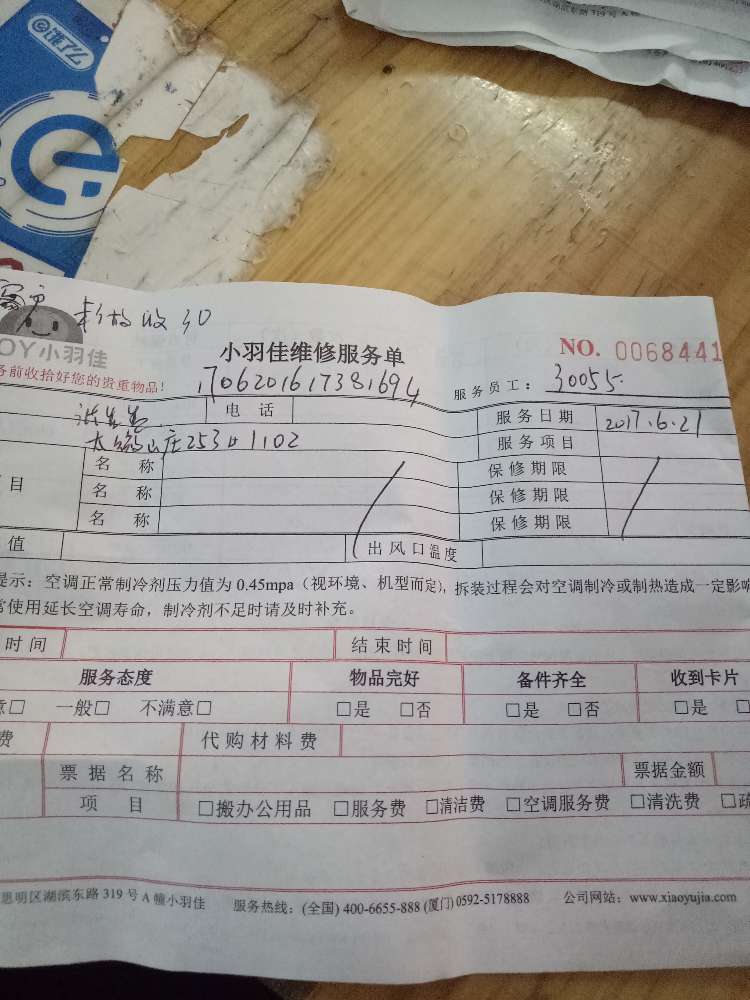 饿了么
收30
OY小羽佳
小羽佳维修服务单
NO. 0068441
务前收拾好您的贵重物品!
1706201617381694
服务员工: 30055
电 话
服务日期 2017.6.21
山庄253 1102
服务项目
目
名 称
保修期限
名 称
保修期限
名 称
保修期限
值
出风口温度
提示: 空调正常制冷剂压力值为 0.45mpa (视环境、机型而定), 拆装过程会对空调制冷或制热造成一定影响
常使用延长空调寿命, 制冷剂不足时请及时补充。
时间
结束时间
服务态度
物品完好
备件齐全
收到卡片
意□ 一般□ 不满意□
□是 □否
□是 □否
□是 □
费
代购材料费
票据名称
票据金额
项 目
□搬办公用品 □服务费 □清洁费 □空调服务费 □清洗费 □疏
思明区湖滨东路 319 号 A 幢小羽佳 服务热线: (全国) 400-6655-888 (厦门) 0592-5178888 公司网站: www.xiaoyujia.com